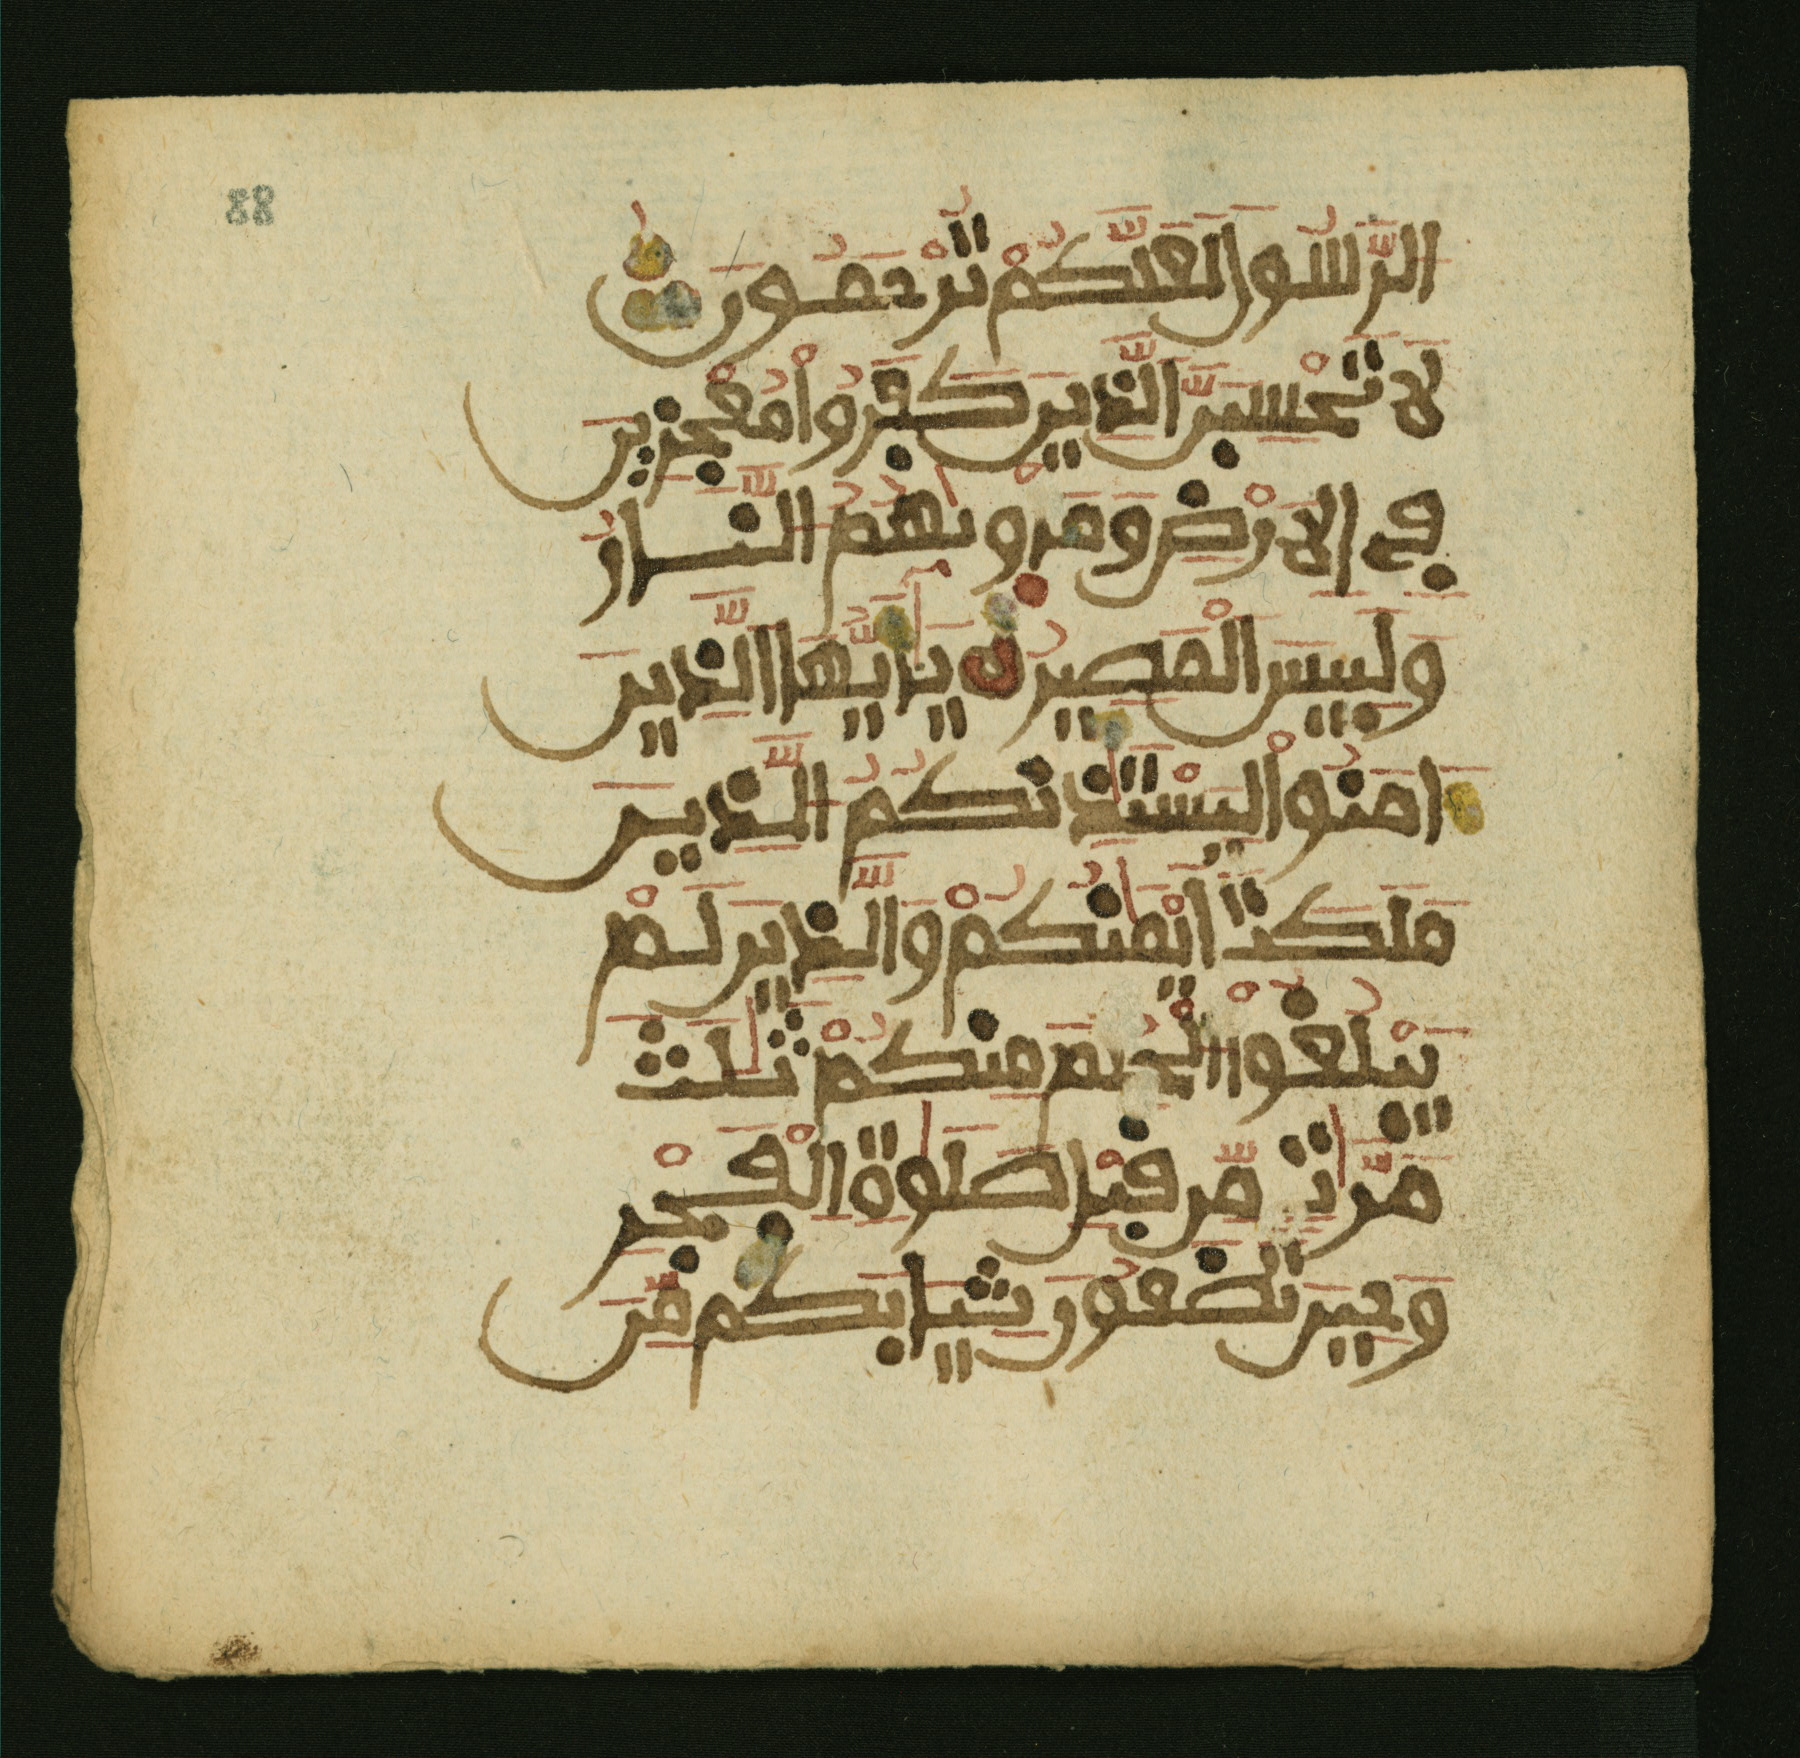 88
الرَّسُولَ لَعَلَّكُمْ تُرْحَمُونَ
لَا تَحْسِبَنَّ الَّذِينَ كَفَرُوا مُعْجِزِينَ
فِے الَارْضِ وَمَأْوٜىٰهُمُ النَّارُ
وَلَبِيسَ الْمَصِيرُ يَٰأَيُّهَا الَّذِينَ
ءَامَنُوا لِيَسْتَٰذِنكُمُ الَّذِينَ
مَلَكَتَ اَيْمَٰنُكُمْ وَالَّذِينَ لَمْ
يَبْلُغُوا الْحُلُمَ مِنكُمْ ثَلَٰثَ
مَرَّٰتٖ مِّن قَبْلِ صَلَوٰةِ الْفَجْرِ
وَحِينَ تَضَعُونَ ثِيَابَكُم مِّنَ